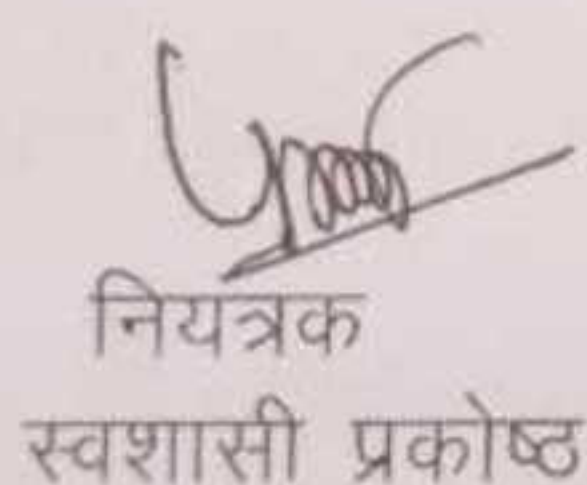 नियत्रक
स्वशासी प्रकोष्ठ